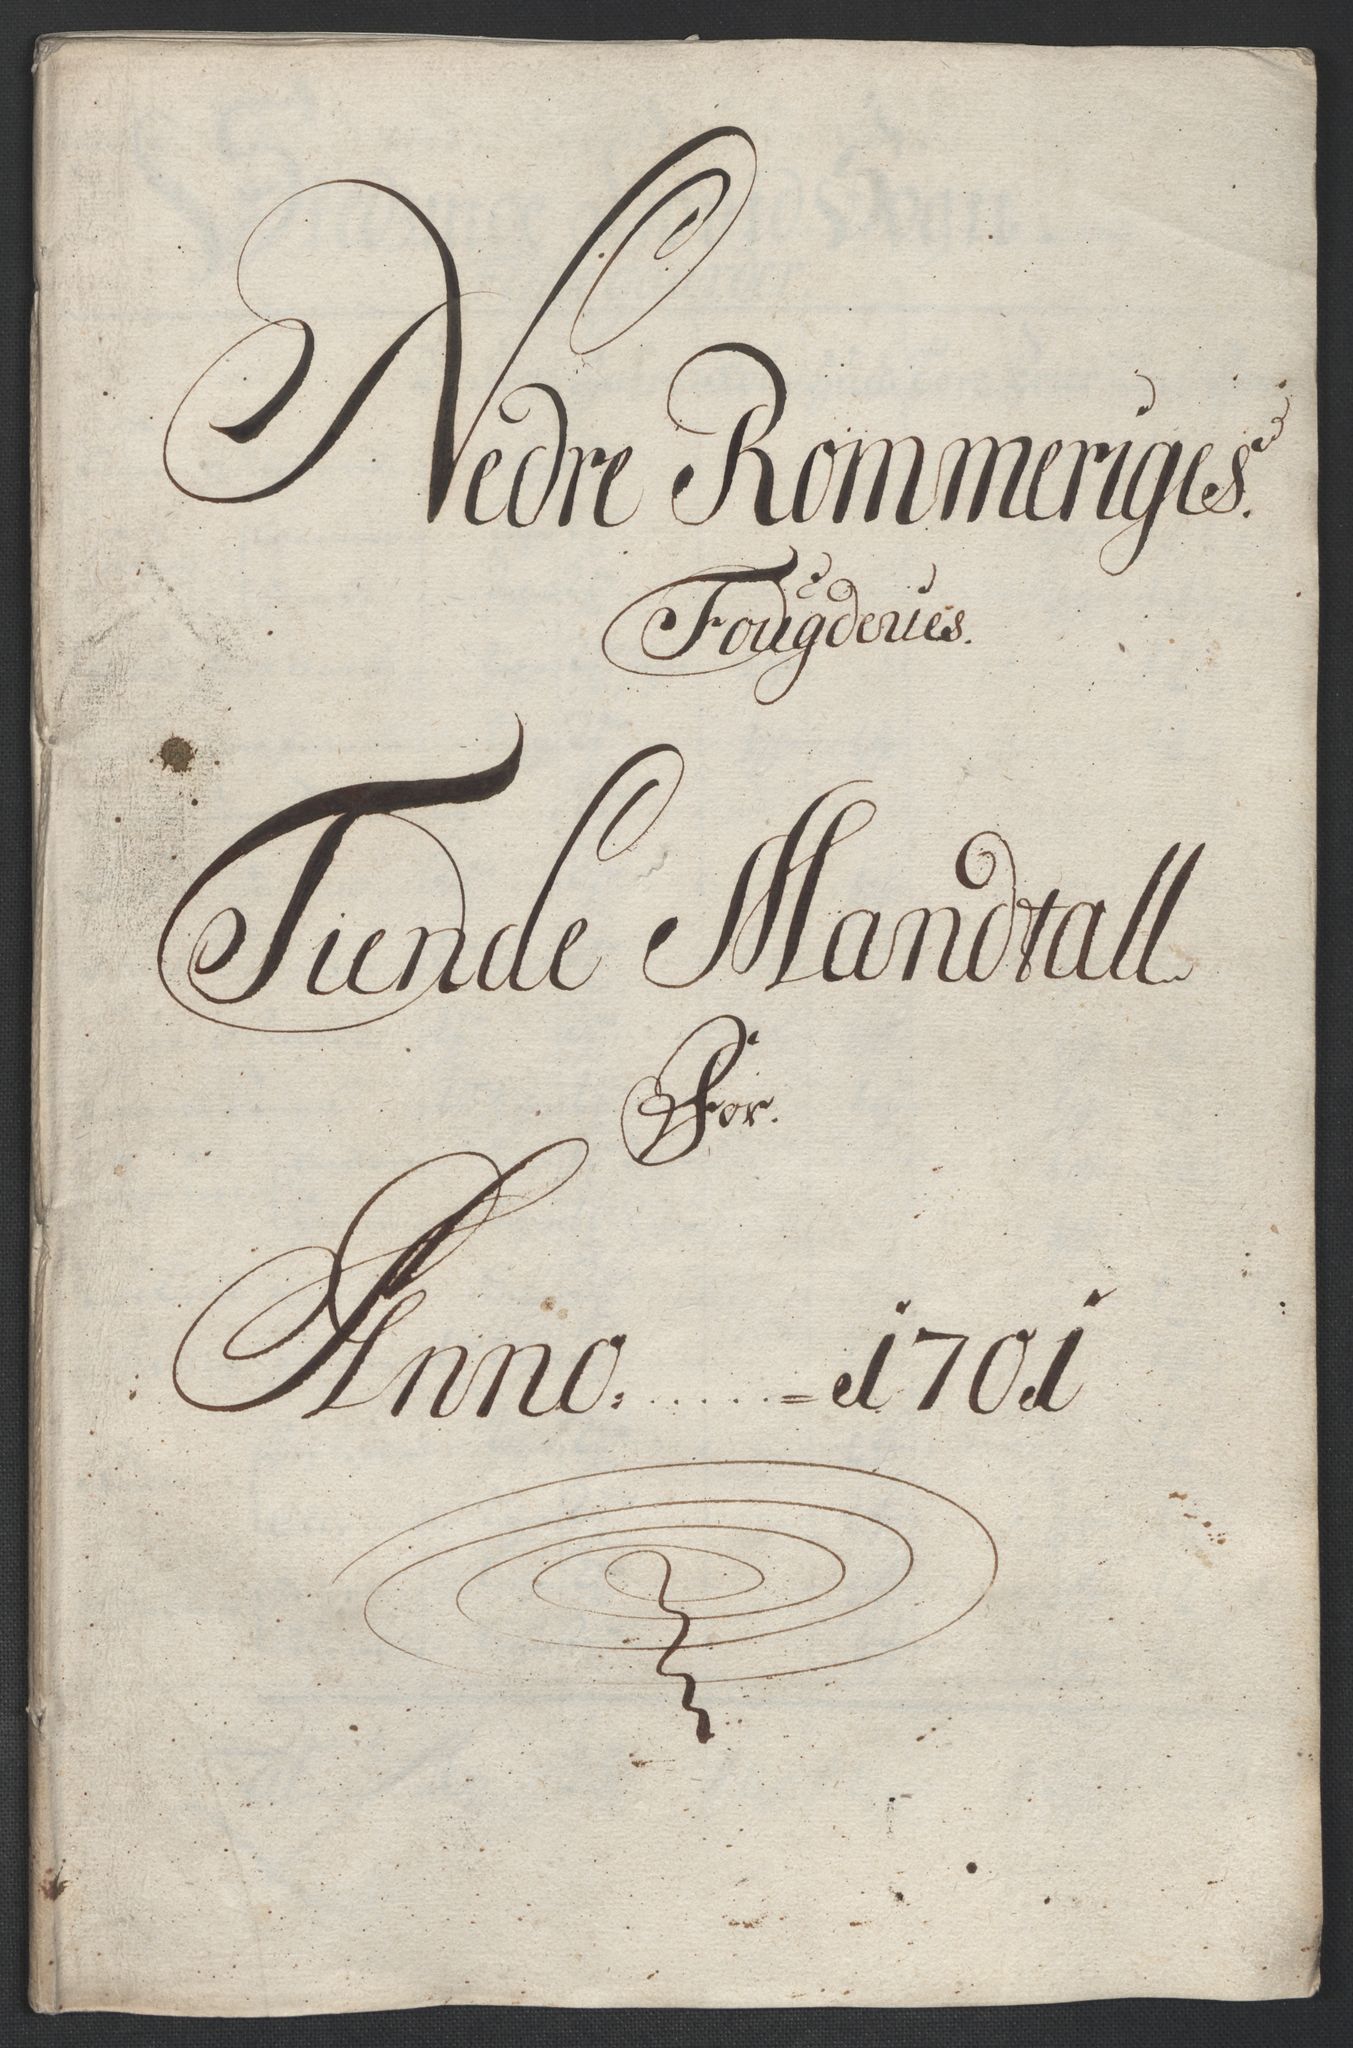 Nedre Rommeriges.
Fougderies.
Tiende Mandtall
For.
Anno. . . . . . = 1701